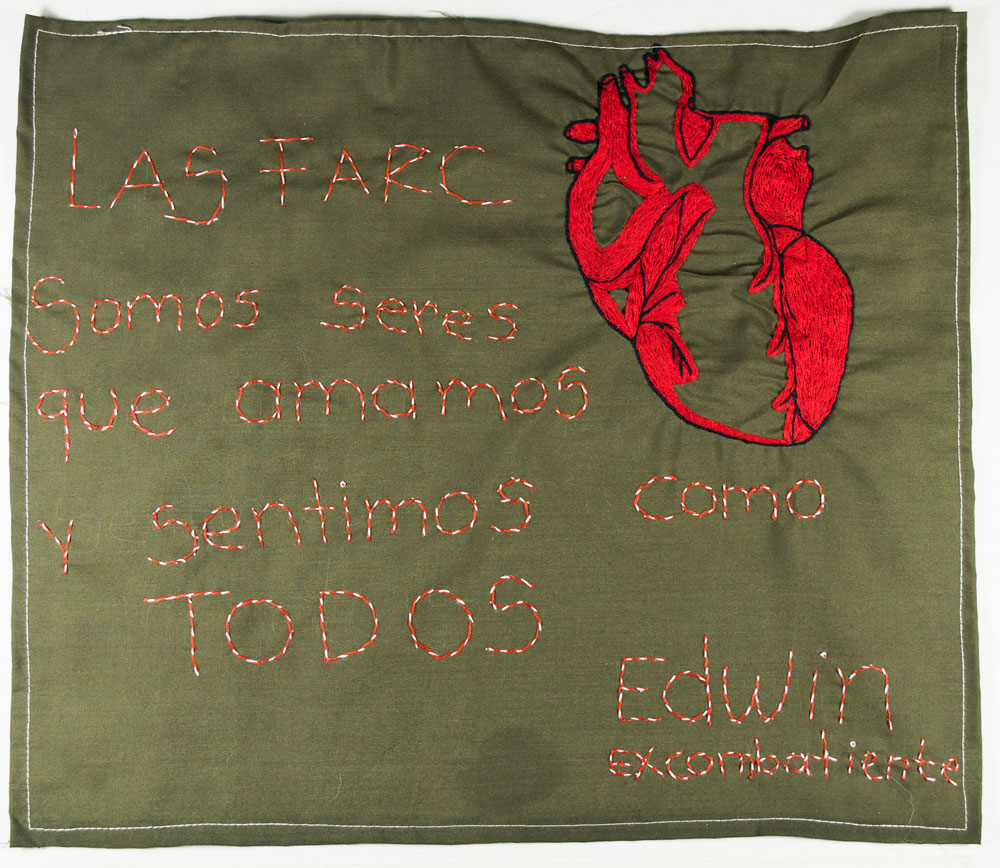 LAS FARC
Somos seres
que amamos
y sentimos como
TODOS
Edwin
excombatiente